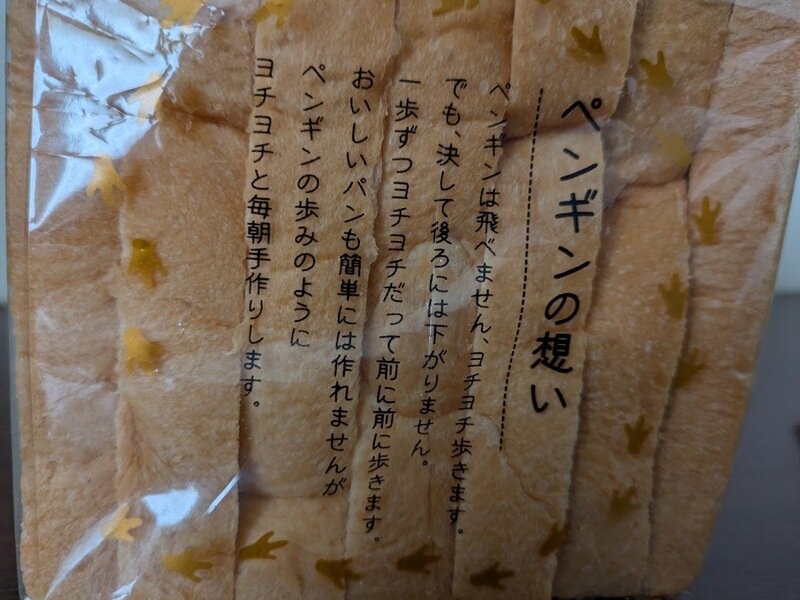 ペンギンの想い
ペンギンは飛べません、ヨチヨチ歩きます。
でも、決して後ろには下がりません。
一歩ずつヨチヨチだって前に前に歩きます。
おいしいパンも簡単には作れませんが
ペンギンの歩みのように
ヨチヨチと毎朝手作りします。